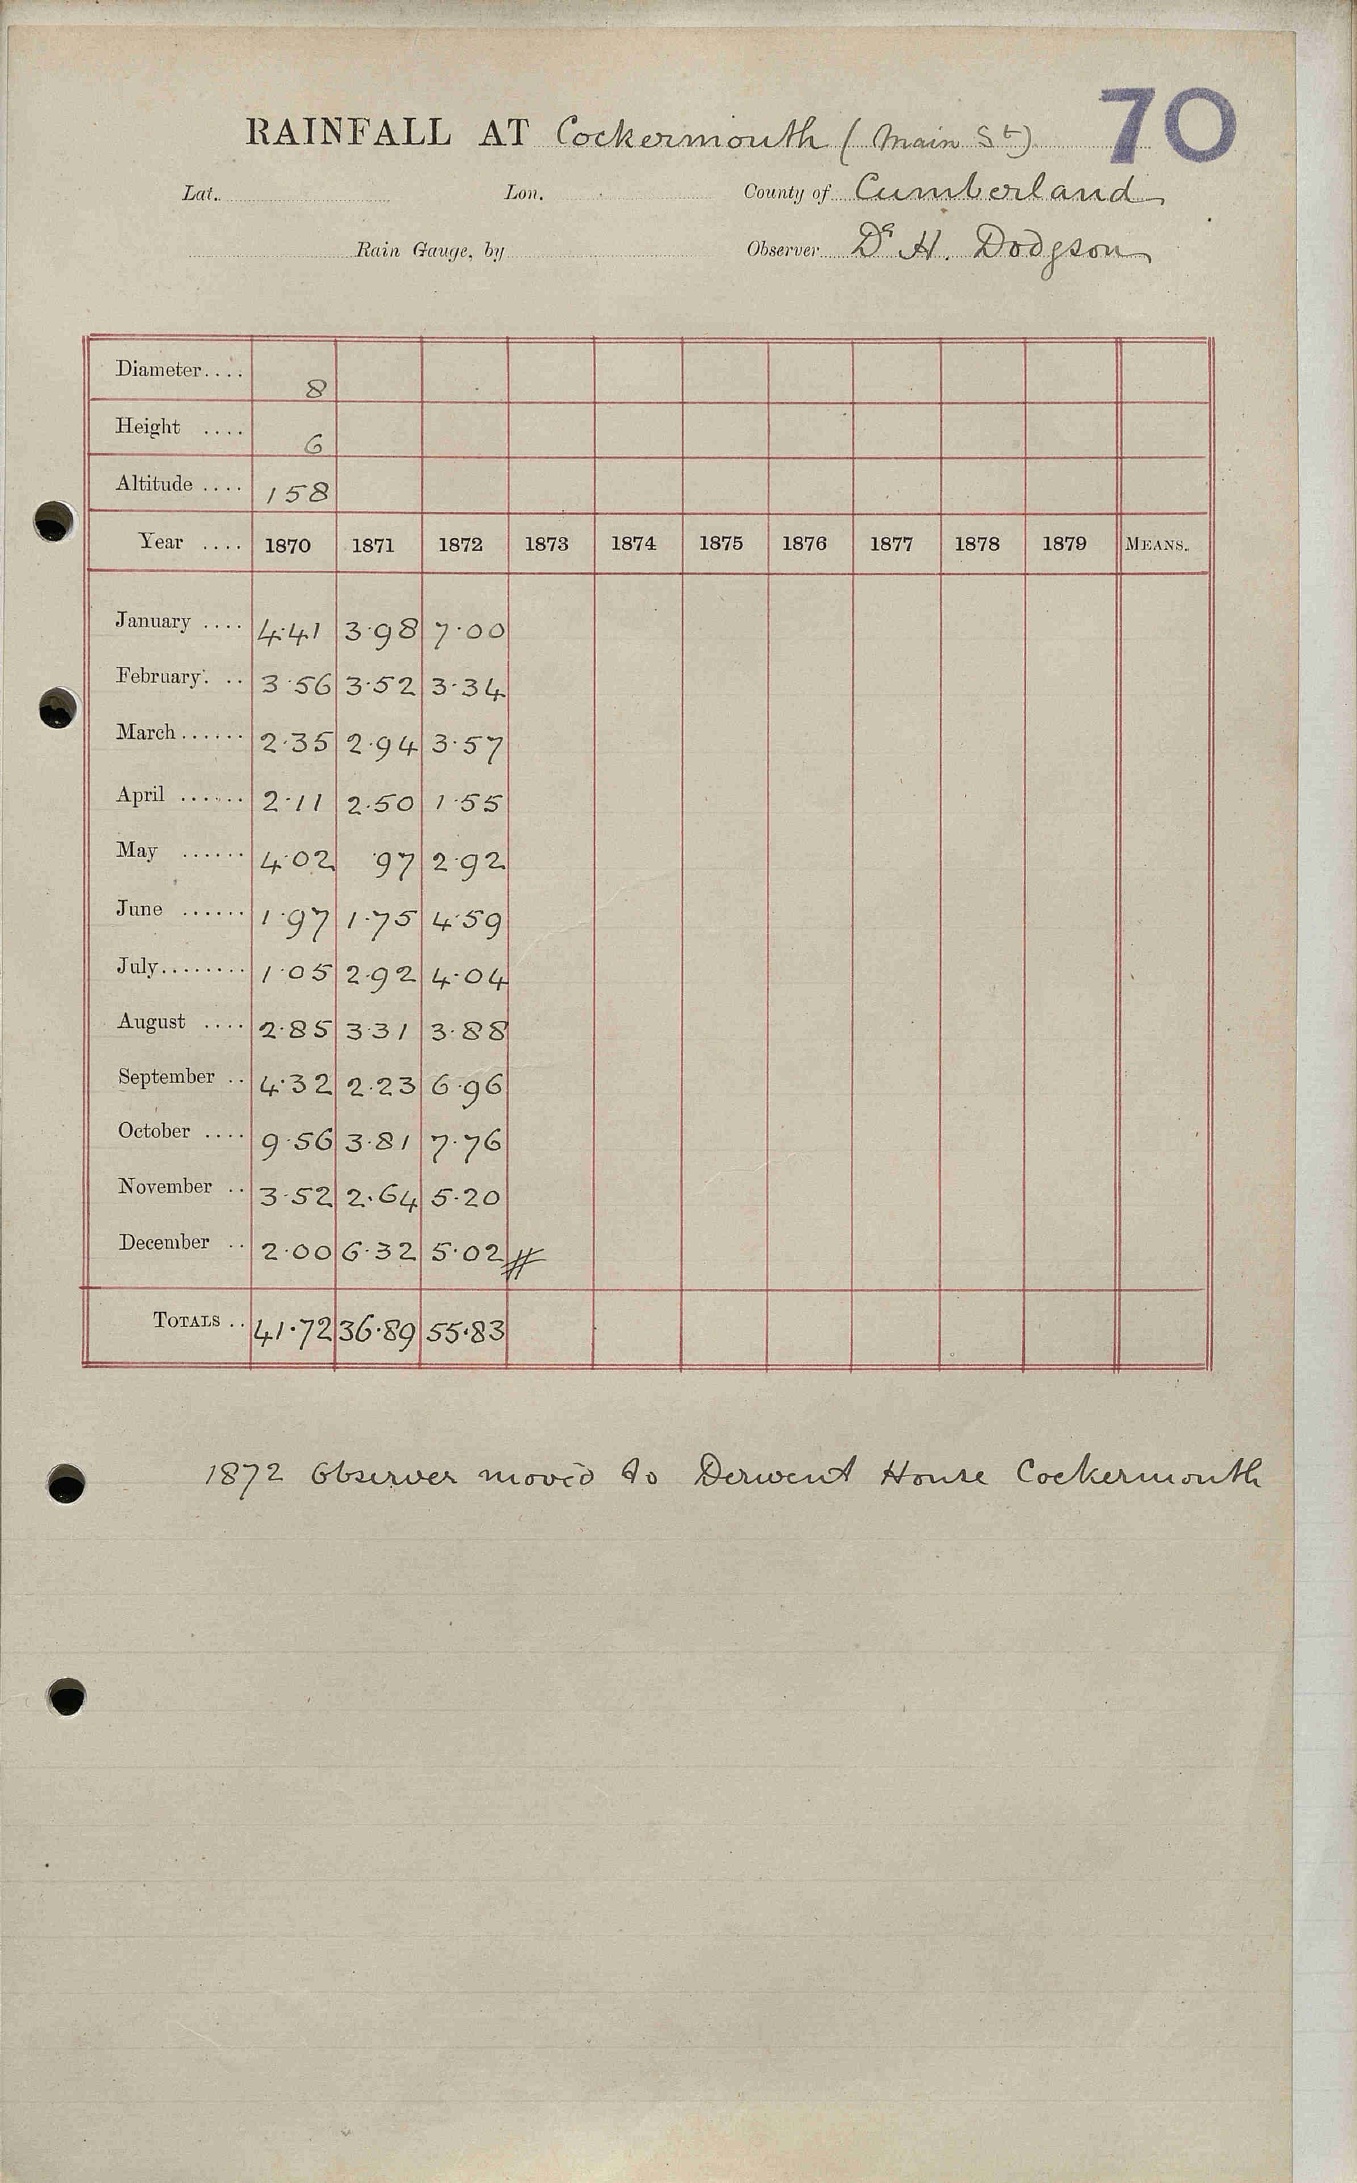 70
RAINFALL AT Cockermouth (Main St)
Lat. Lon. County of Cumberland
Rain Gauge, by Observer Dr H. Dodgson
Diameter.... 8
Height .... 6
Altitude .... 158
Year .... 1870 1871 1872 1873 1874 1875 1876 1877 1878 1879 MEANS.
January .... 4.41 3.98 7.00
February. .. 3.56 3.52 3.34
March...... 2.35 2.94 3.57
April ...... 2.11 2.50 1.55
May ...... 4.02 .97 2.92
June ...... 1.97 1.75 4.59
July........ 1.05 2.92 4.04
August .... 2.85 3.31 3.88
September .. 4.32 2.23 6.96
October .... 9.56 3.81 7.76
November .. 3.52 2.64 5.20
December .. 2.00 6.32 5.02
TOTALS .. 41.72 36.89 55.83
1872 Observer moved to Derwent House Cockermouth